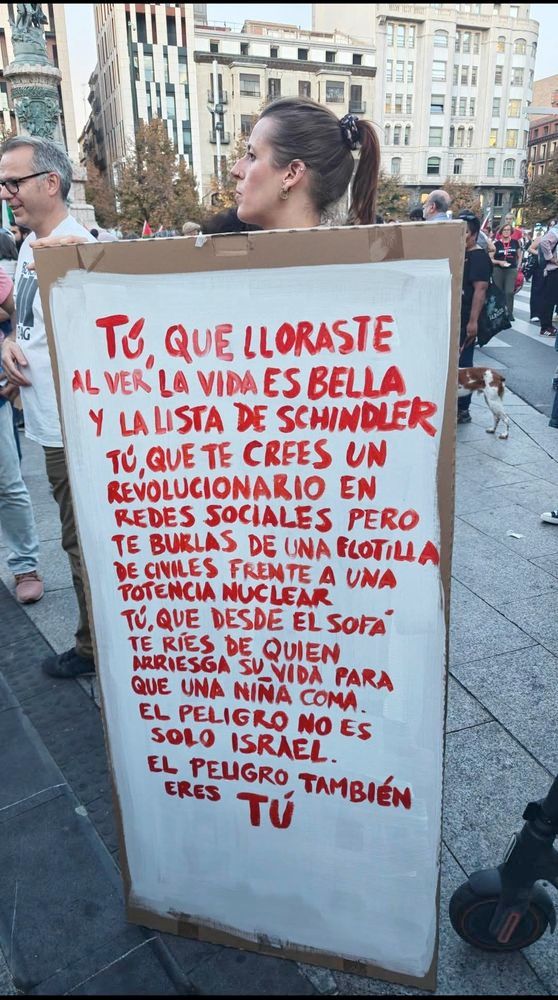 TÚ, QUE LLORASTE
AL VER LA VIDA ES BELLA
Y LA LISTA DE SCHINDLER
TÚ, QUE TE CREES UN
REVOLUCIONARIO EN
REDES SOCIALES PERO
TE BURLAS DE UNA FLOTILLA
DE CIVILES FRENTE A UNA
POTENCIA NUCLEAR
TÚ, QUE DESDE EL SOFÁ
TE RÍES DE QUIEN
ARRIESGA SU VIDA PARA
QUE UNA NIÑA COMA.
EL PELIGRO NO ES
SOLO ISRAEL.
EL PELIGRO TAMBIÉN
ERES TÚ